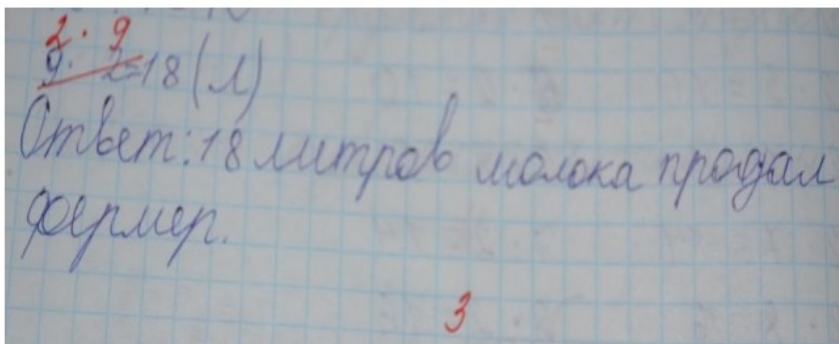 2 · 9
9 · 2=18 (л)
Ответ: 18 литров молока продал
фермер.
3